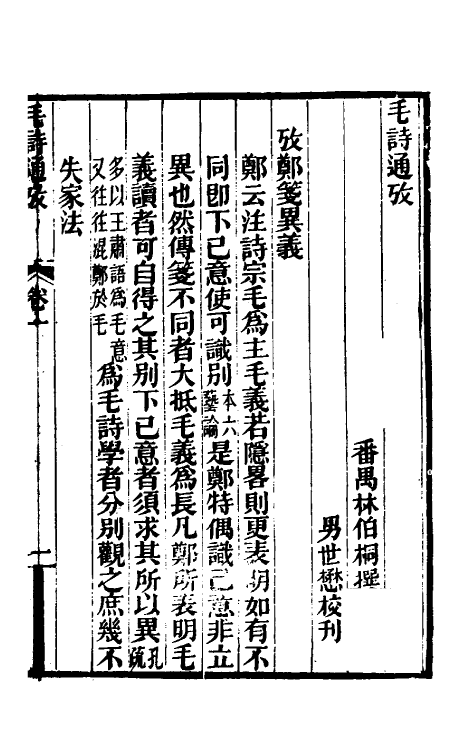 毛詩通攷
番禺林伯桐撰
男世懋校刊
攷鄭箋異義
鄭云注詩宗毛爲主毛義若隱畧則更表明如有不
同即下已意使可識別本六藝論是鄭特偶識已意非立
異也然傳箋不同者大抵毛義爲長凡鄭所表明毛
義讀者可自得之其別下已意者須求其所以異孔疏
多以王肅語爲毛意又往往混鄭於毛爲毛詩學者分別觀之庶幾不
失家法
毛詩通攷
卷一
一